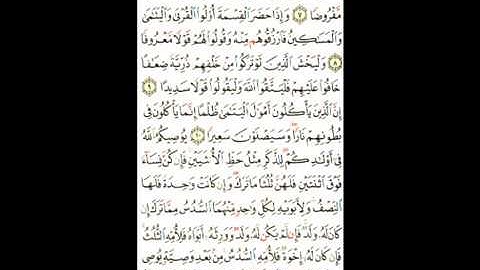 مَّفْرُوضًا ٧ وَإِذَا حَضَرَ الْقِسْمَةَ أُوْلُوا الْقُرْبَىٰ وَالْيَتَٰمَىٰ
وَالْمَسَٰكِينُ فَارْزُقُوهُم مِّنْهُ وَقُولُوا لَهُمْ قَوْلًا مَّعْرُوفًا
٨ وَلْيَخْشَ الَّذِينَ لَوْ تَرَكُوا مِنْ خَلْفِهِمْ ذُرِّيَّةً ضِعَٰفًا
خَافُوا عَلَيْهِمْ فَلْيَتَّقُوا اللَّهَ وَلْيَقُولُوا قَوْلًا سَدِيدًا ٩
إِنَّ الَّذِينَ يَأْكُلُونَ أَمْوَٰلَ الْيَتَٰمَىٰ ظُلْمًا إِنَّمَا يَأْكُلُونَ فِي
بُطُونِهِمْ نَارًا وَسَيَصْلَوْنَ سَعِيرًا ١٠ يُوصِيكُمُ اللَّهُ
فِي أَوْلَٰدِكُمْ لِلذَّكَرِ مِثْلُ حَظِّ الْأُنثَيَيْنِ فَإِن كُنَّ نِسَاءً
فَوْقَ اثْنَتَيْنِ فَلَهُنَّ ثُلُثَا مَا تَرَكَ وَإِن كَانَتْ وَٰحِدَةً فَلَهَا
النِّصْفُ وَلِأَبَوَيْهِ لِكُلِّ وَٰحِدٍ مِّنْهُمَا السُّدُسُ مِمَّا تَرَكَ إِن
كَانَ لَهُ وَلَدٌ فَإِن لَّمْ يَكُن لَّهُ وَلَدٌ وَوَرِثَهُ أَبَوَاهُ فَلِأُمِّهِ الثُّلُثُ
فَإِن كَانَ لَهُ إِخْوَةٌ فَلِأُمِّهِ السُّدُسُ مِنْ بَعْدِ وَصِيَّةٍ يُوصِي